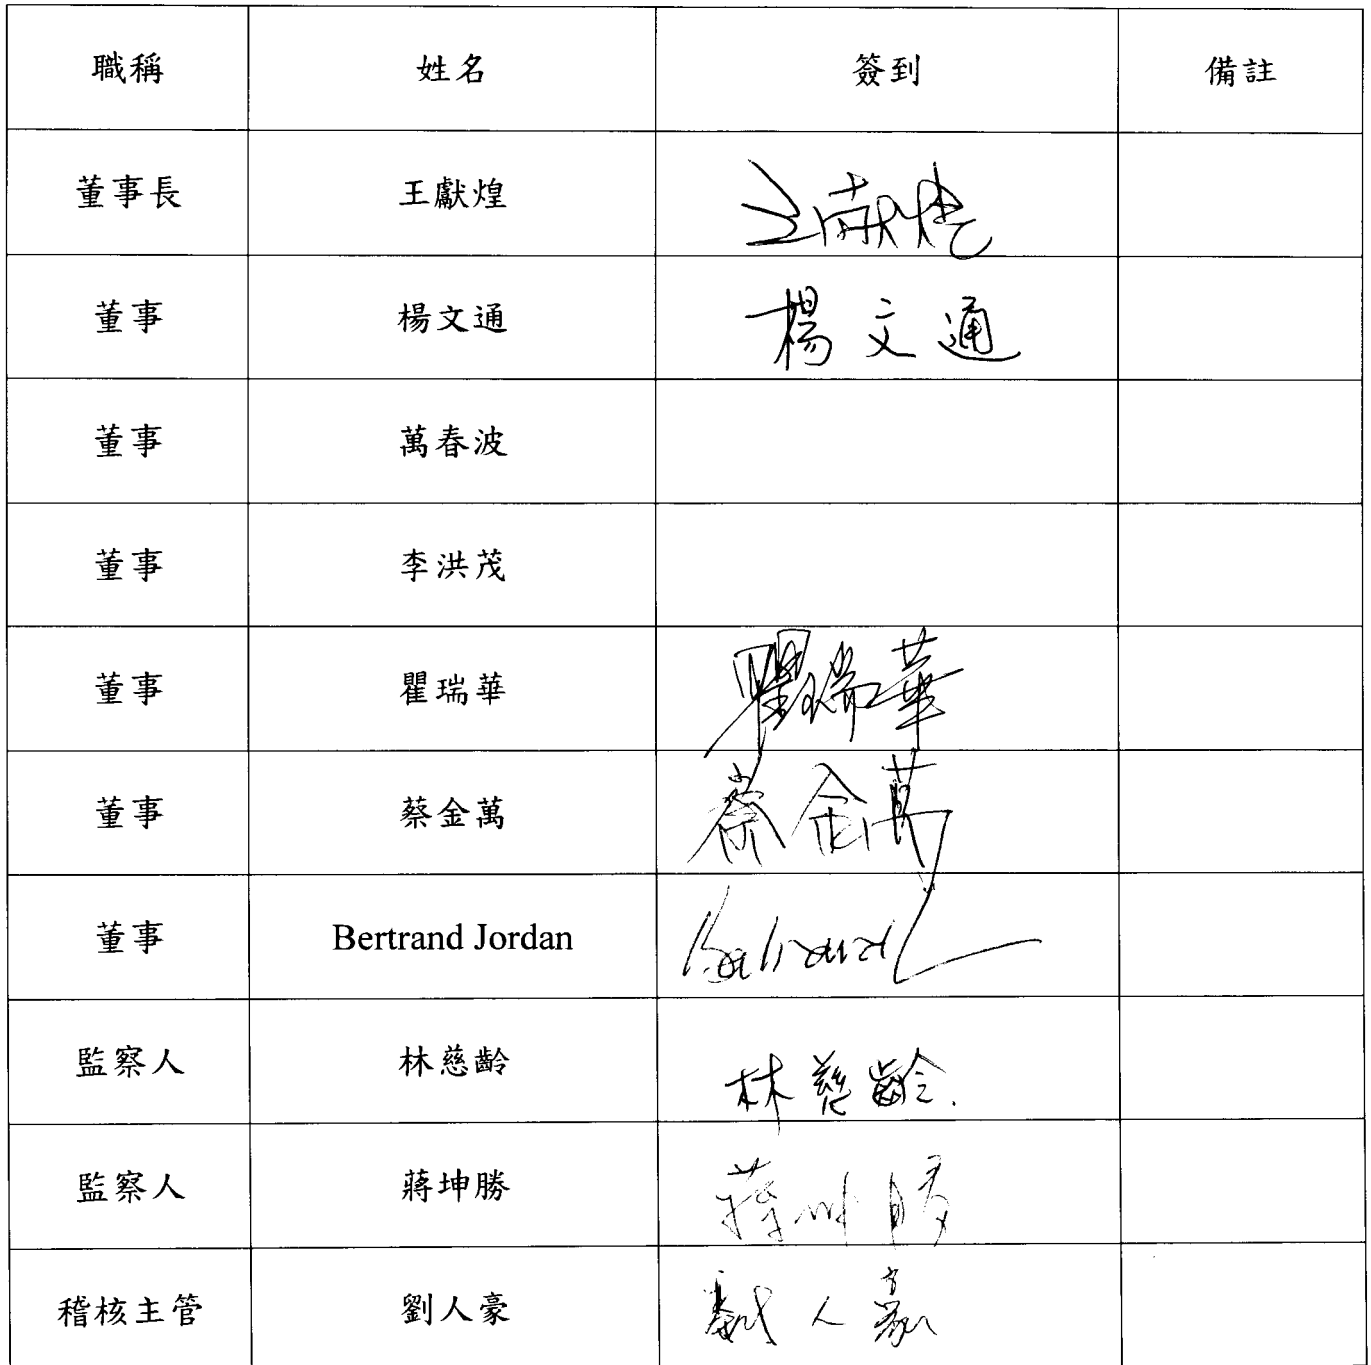 職稱 姓名 簽到 備註
董事長 王獻煌 王獻煌
董事 楊文通 楊文通
董事 萬春波
董事 李洪茂
董事 瞿瑞華 瞿瑞華
董事 蔡金萬 蔡金萬
董事 Bertrand Jordan Bertrand
監察人 林慈齡 林慈齡
監察人 蔣坤勝 蔣坤勝
稽核主管 劉人豪 劉人豪